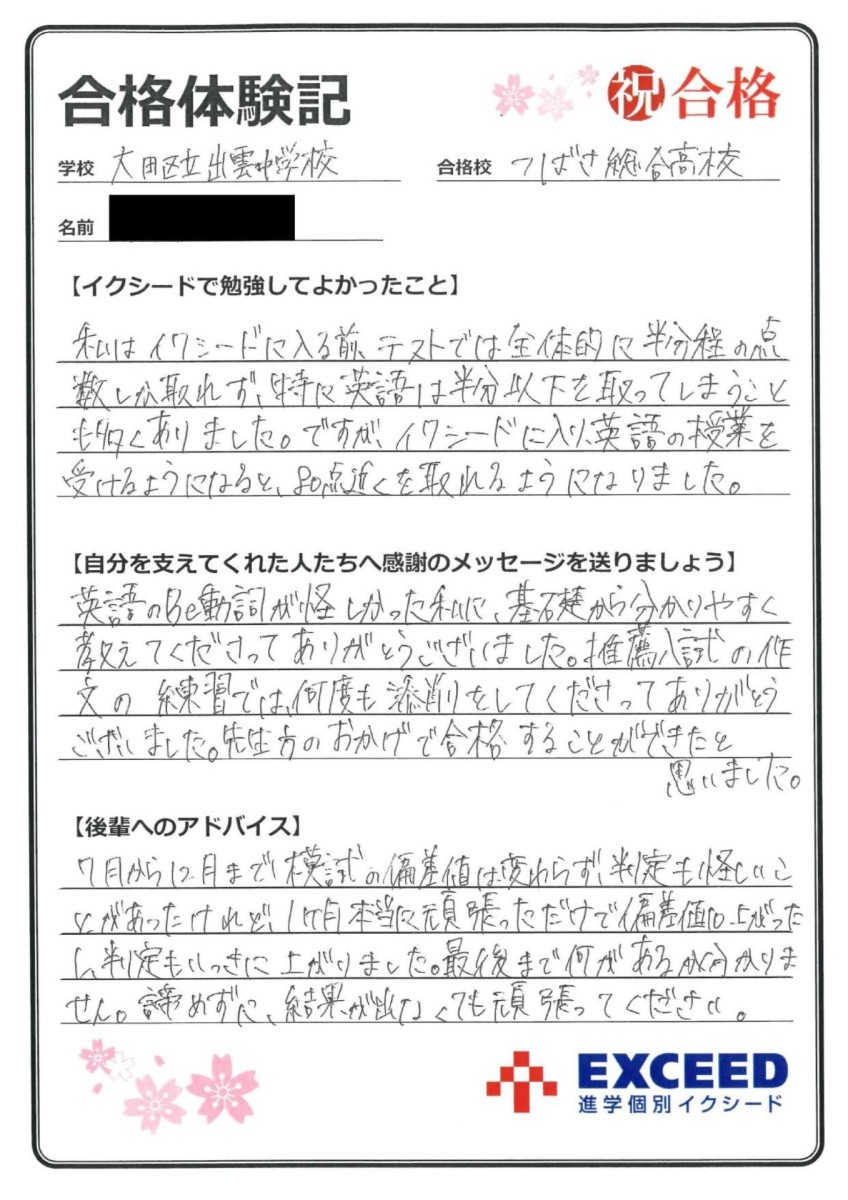 合格体験記
祝 合格
学校 大田区立出雲中学校
合格校 つばさ総合高校
名前
【イクシードで勉強してよかったこと】
私はイクシードに入る前、テストでは全体的に半分程の点
数しか取れず、特に英語は半分以下を取ってしまうこと
も多くありました。ですが、イクシードに入り、英語の授業を
受けるようになると、80点近くを取れるようになりました。
【自分を支えてくれた人たちへ感謝のメッセージを送りましょう】
英語のBe動詞が怪しかった私に、基礎から分かりやすく
教えてくださってありがとうございました。推薦入試の作
文の練習では、何度も添削をしてくださってありがとう
ございました。先生方のおかげで合格することができたと
思いました。
【後輩へのアドバイス】
7月から12月まで模試の偏差値は変わらず、判定も怪しいこ
とがあったけれど、1ヶ月本当に頑張っただけで偏差値は上がった
し、判定もいっきに上がりました。最後まで何があるか分かりま
せん。諦めずに、結果が出なくても頑張ってください。
EXCEED
進学個別イクシード